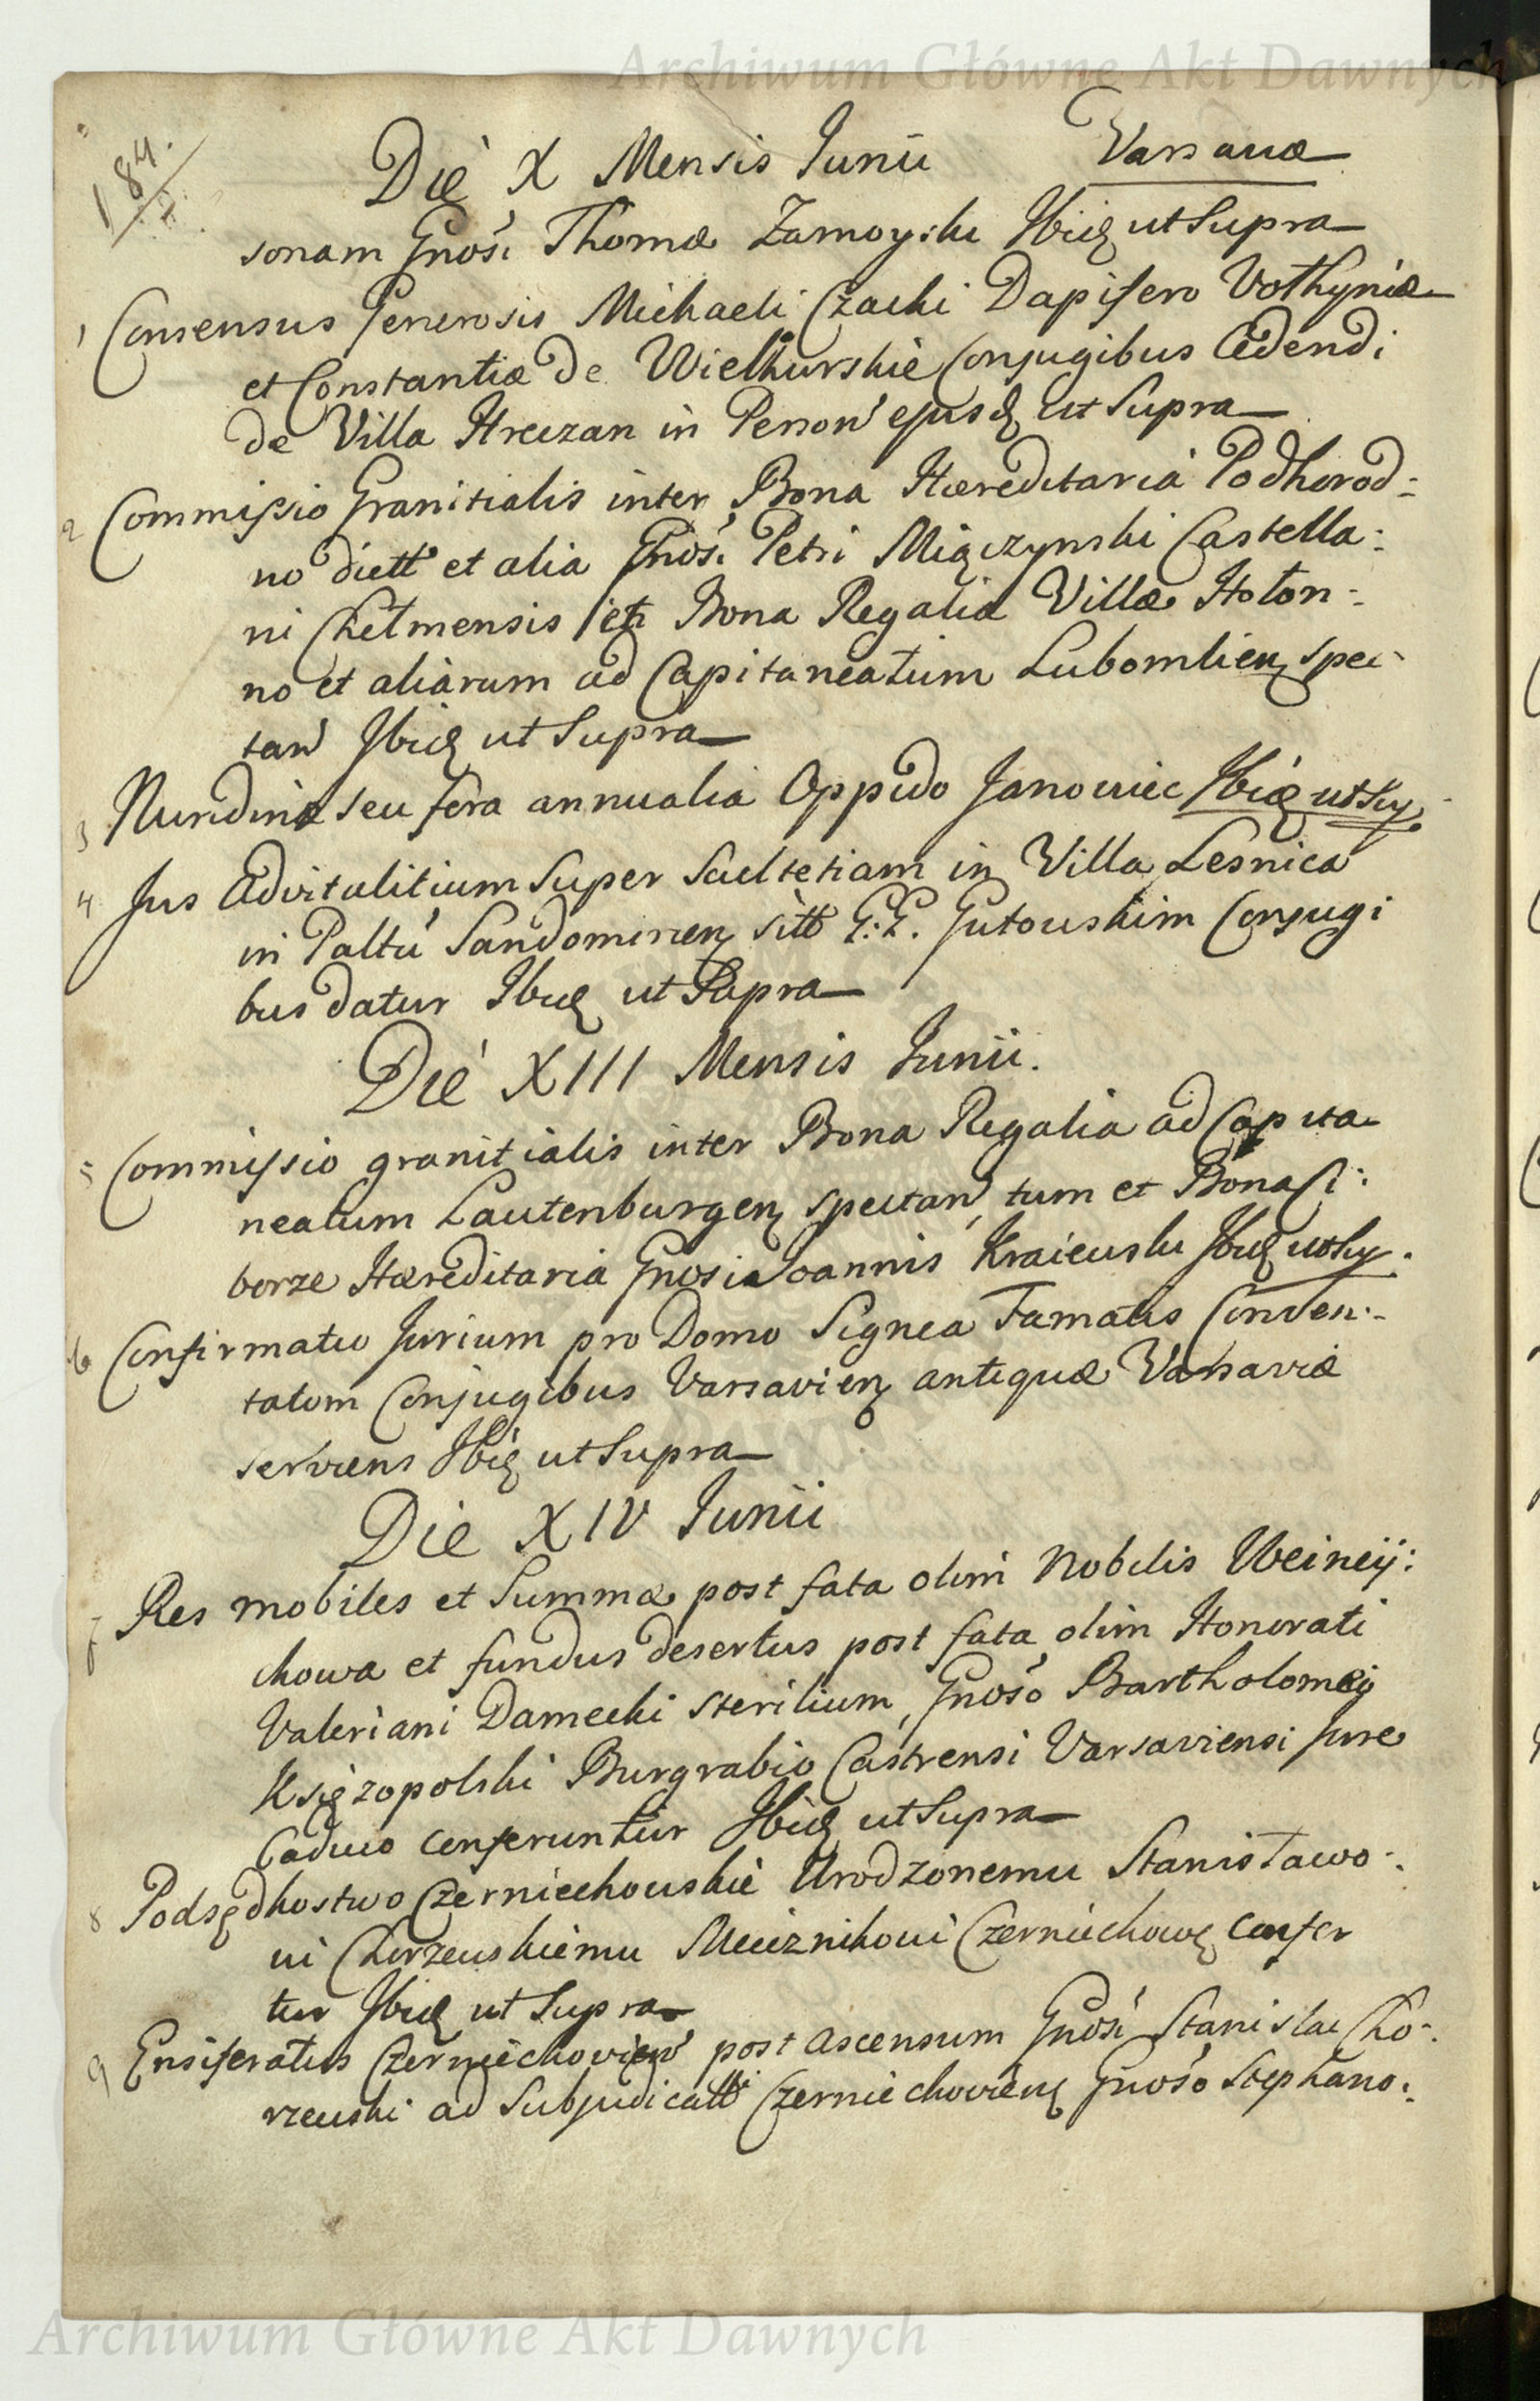 Archiwum Główne Akt Dawnych
184.
Die X Mensis Junii Varsaviæ
sonam Gnosi Thomæ Zamoyski Ibid ut Supra
1 Consensus Generosis Michaeli Czacki Dapifero Vołhyniæ
et Constantiæ de Wielhurskie Conjugibus Cedendi
de Villa Hreczan in Person ejusd ut Supra
2 Commissio Granitialis inter Bona Hæreditaria Podhorod-
no dictt et alia Gnosi Petri Miączynski Castella:
ni Chełmensis et Bona Regalia Villæ Hołon-
no et aliarum ad Capitaneatum Lubomlien spec-
tan Ibid ut Supra
3 Nundinæ seu fora annualia Oppido Janowiec Ibid ut Su
4 Jus Advitalitium Super Scultetiam in Villa Lesnica
in Paltu Sandomirien sitt G:G. Gutowskim Conjugi
bus datur Ibid ut Supra
Die XIII Mensis Junii.
5 Commissio granitialis inter Bona Regalia ad Capita
neatum Lautenburgen spectan, tum et Bona Ci:
borze Hæreditaria Gnosi Joannis Kraiewski Ibid ut Su.
6 Confirmatio Jurium pro Domo Lignea Famatis
tatom Conjugibus Varsavien antiquæ Varsaviæ
serviens Ibid ut Supra
Die XIV Junii
7 Res mobiles et Summæ post fata olim Nobilis Weineij:
chowa et fundus desertus post fata olim Honorati
Valeriani Damecki sterilium, Gnoso Bartholomeo
Księzopolski Burgrabio Castrensi Varsaviensi Jure
Caduco conferuntur Ibid ut Supra
8 Podsędkostwo Czerniechowskie Urodzonemu Stanisławo:
wi Chorzewskiemu Miecznikowi Czerniechow confer
tur Ibid ut Supra
9 Ensiferatus Czerniechovien post ascensum Gnosi Stanislai Cho:
rzewski ad Subjudicatt Czerniechovien Gnoso Stephano:
Archiwum Główne Akt Dawnych